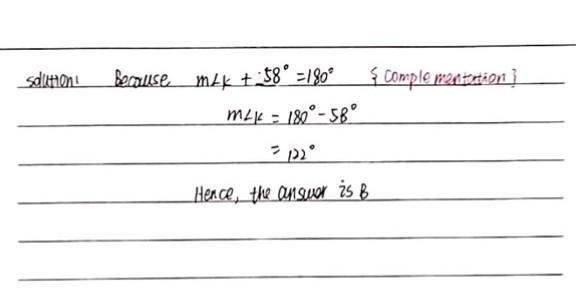 solution: Because m∠k + 58° = 180° {complementation}
m∠k = 180° - 58°
= 122°
Hence, the answer is B